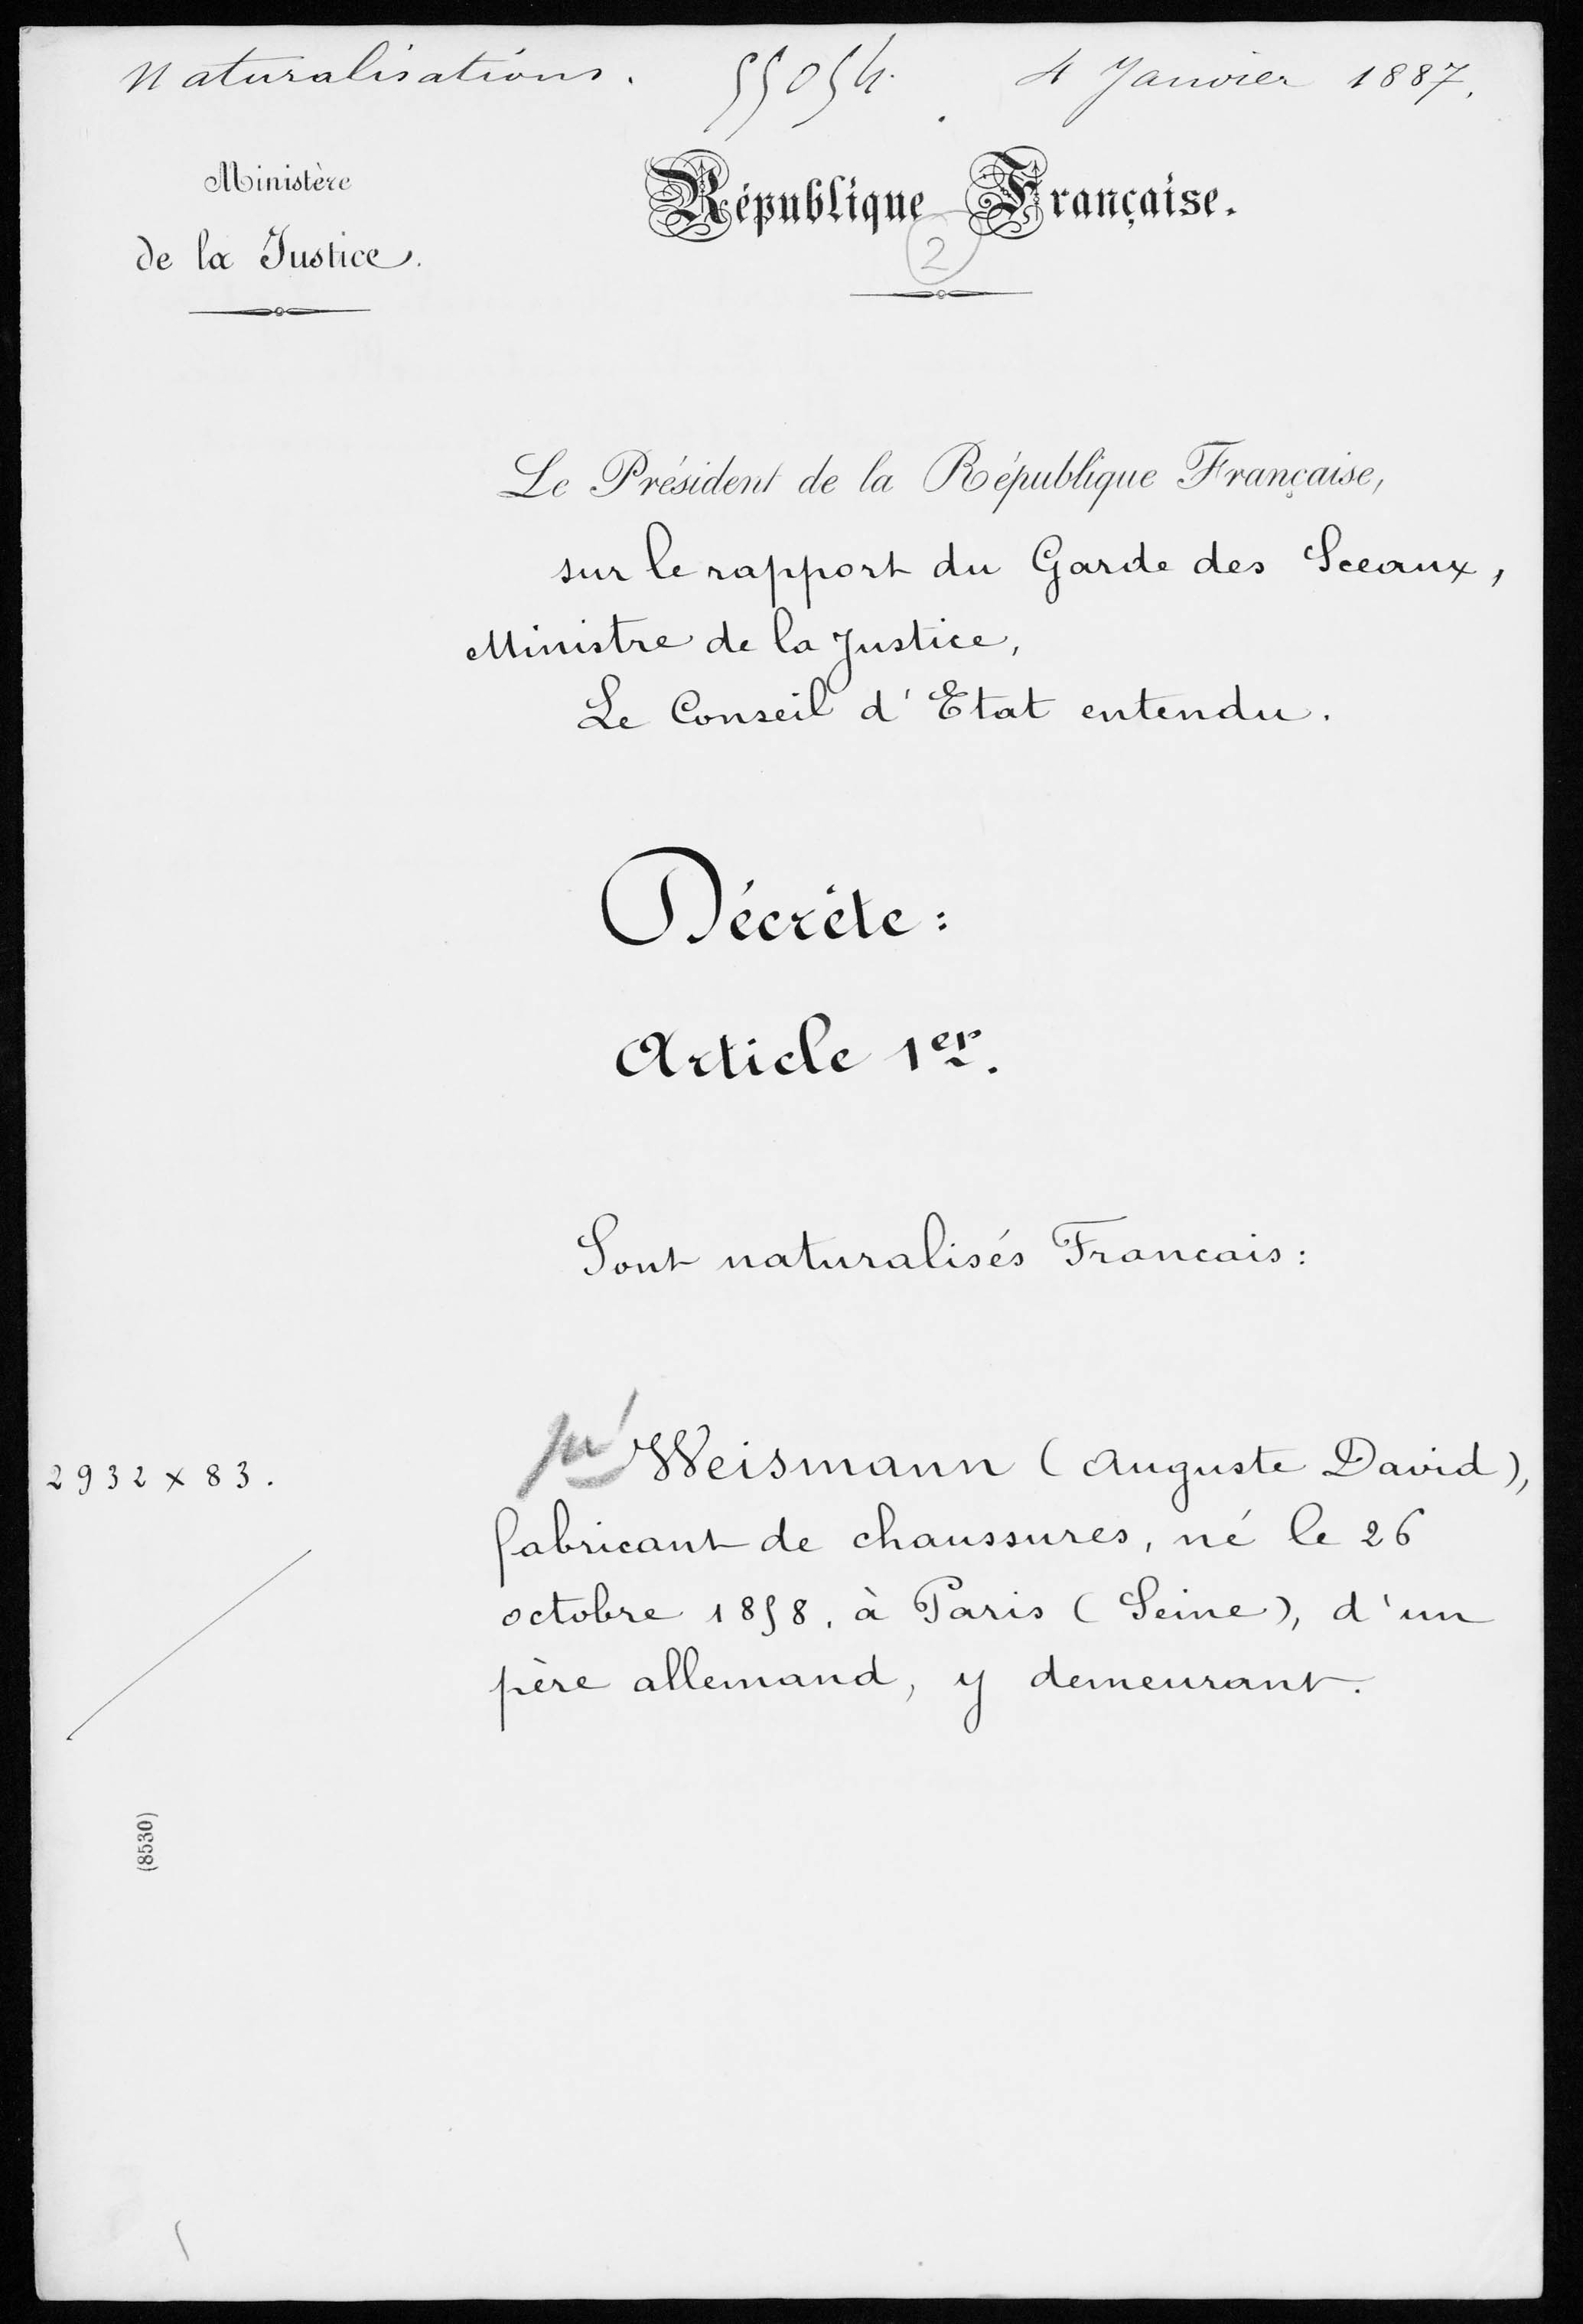 Naturalisations. 55054. 4 Janvier 1887.
Ministère
de la Justice.
République Française.
2
Le Président de la République Française,
sur le rapport du Garde des Sceaux,
Ministre de la Justice,
Le Conseil d'Etat entendu.
Décrète :
Article 1er.
Sont naturalisés Francais :
2932 x 83.
Weismann (Auguste David),
fabricant de chaussures, né le 26
octobre 1858, à Paris (Seine), d'un
père allemand, y demeurant.
(8530)